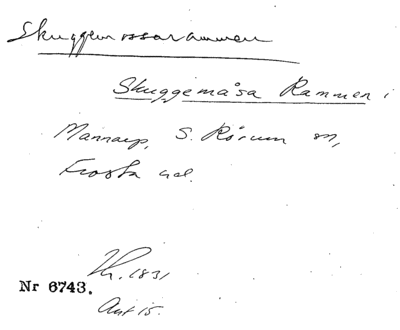 Skuggemossarammen
Skuggemåsa Rammen i
Mannarp, S. Rörum sn,
Frosta hd.
1831
Nr 6743.
Ant 15.